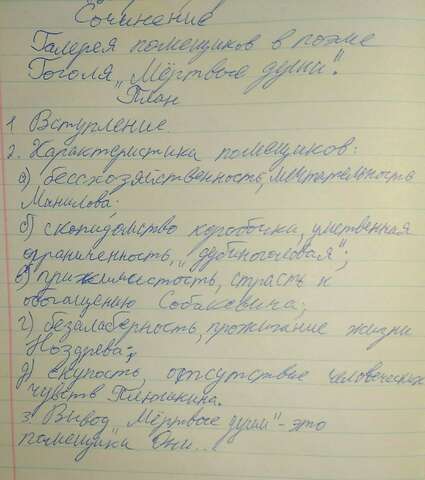 Сочинение
Галерея помещиков в поэме
Гоголя „Мёртвые души".
План
1 Вступление.
2. Характеристика помещиков:
а) бессхозяйственность, мечтательность
Манилова.
б) скопидомство коробочки, умственная
ограниченность, „дубиноголовая";
в) прижимистость, страсть к
обогащению Собакевича;
г) безалаберность, прожигание жизни
Ноздрева;
д) скупость, отсутствие человеческих
чувств Плюшкина.
3. Вывод „Мёртвые души" - это
помещики Они...